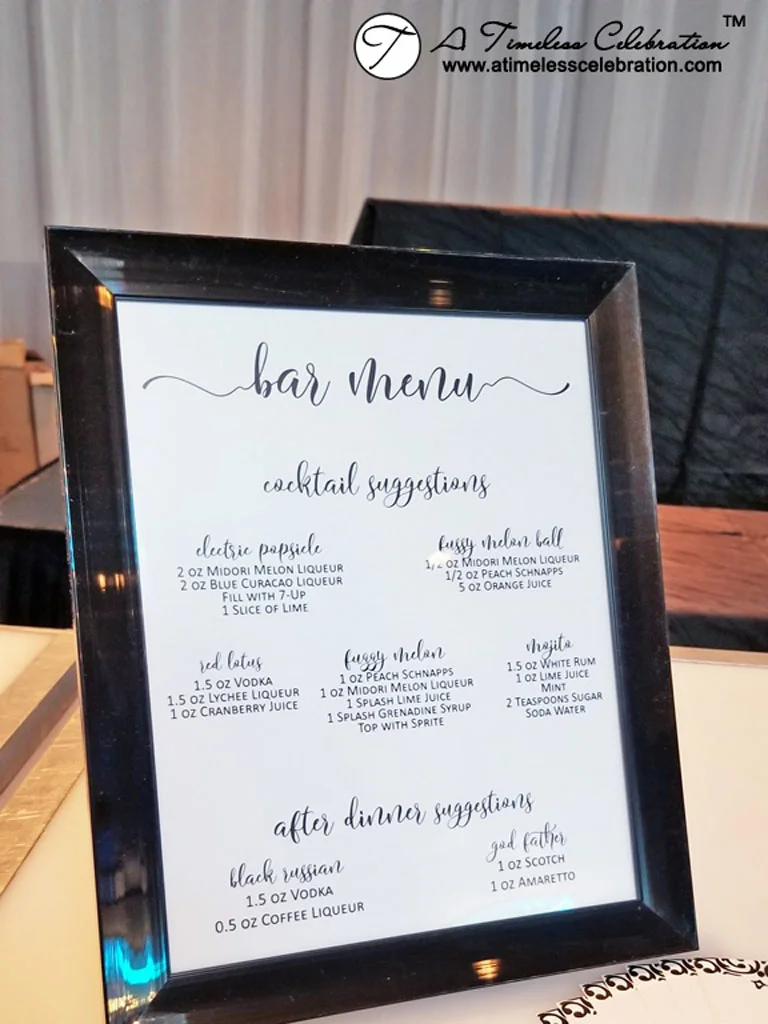 T A Timeless Celebration ™
www.atimelesscelebration.com
bar menu
cocktail suggestions
electric popsicle
2 oz Midori Melon Liqueur
2 oz Blue Curacao Liqueur
Fill with 7-Up
1 Slice of Lime
fuzzy melon ball
1/2 oz Midori Melon Liqueur
1/2 oz Peach Schnapps
5 oz Orange Juice
red lotus
1.5 oz Vodka
1.5 oz Lychee Liqueur
1 oz Cranberry Juice
fuzzy melon
1 oz Peach Schnapps
1 oz Midori Melon Liqueur
1 Splash Lime Juice
1 Splash Grenadine Syrup
Top with Sprite
mojito
1.5 oz White Rum
1 oz Lime Juice
Mint
2 Teaspoons Sugar
Soda Water
after dinner suggestions
black russian
1.5 oz Vodka
0.5 oz Coffee Liqueur
god father
1 oz Scotch
1 oz Amaretto